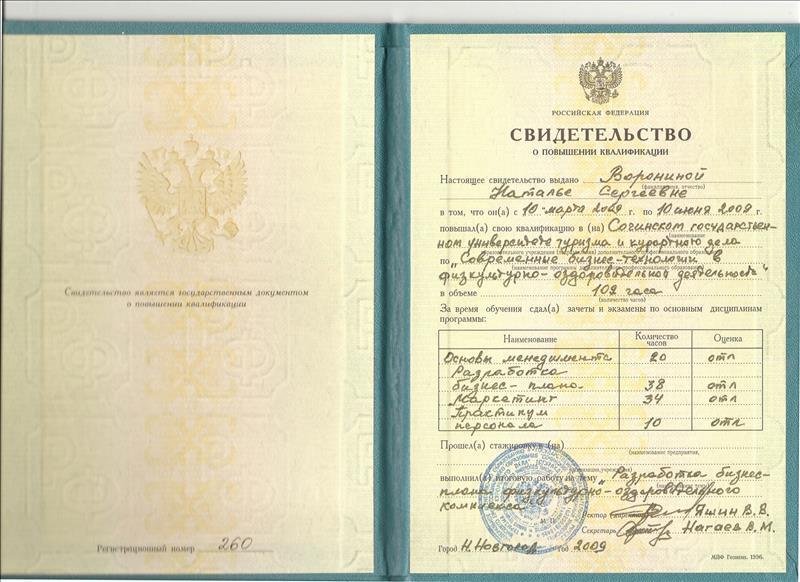 Свидетельство является государственным документом
о повышении квалификации
Регистрационный номер 260
РОССИЙСКАЯ ФЕДЕРАЦИЯ
СВИДЕТЕЛЬСТВО
О ПОВЫШЕНИИ КВАЛИФИКАЦИИ
Настоящее свидетельство выдано Ворониной
(фамилия, имя, отчество)
Наталье Сергеевне
в том, что он(а) с 10 марта 2009 г. по 10 июня 2009 г.
повышал(а) свою квалификацию в (на) Сочинском государствен-
(наименование
ном университете туризма и курортного дела
образовательного учреждения (подразделения) дополнительного профессионального образования)
по „Современные бизнес-технологии в
(наименование программы дополнительного профессионального образования)
физкультурно-оздоровительной деятельности“
в объеме 102 часа
(количество часов)
За время обучения сдал(а) зачеты и экзамены по основным дисциплинам
программы:
Наименование Количество часов Оценка
Основы менеджмента 20 отл
Разработка
бизнес-плана 38 отл
Маркетинг 34 отл
Практикум
персонала 10 отл
Прошел(а) стажировку в (на)
(наименование предприятия,
организации, учреждения)
выполнил(а) итоговую работу на тему „Разработка бизнес-
плана физкультурно-оздоровительного
комплекса
Ректор (директор) Яшин В.В.
М. П.
Секретарь Нагаев В.М.
Город Н.Новгород год 2009
МПФ Гознака. 1996.